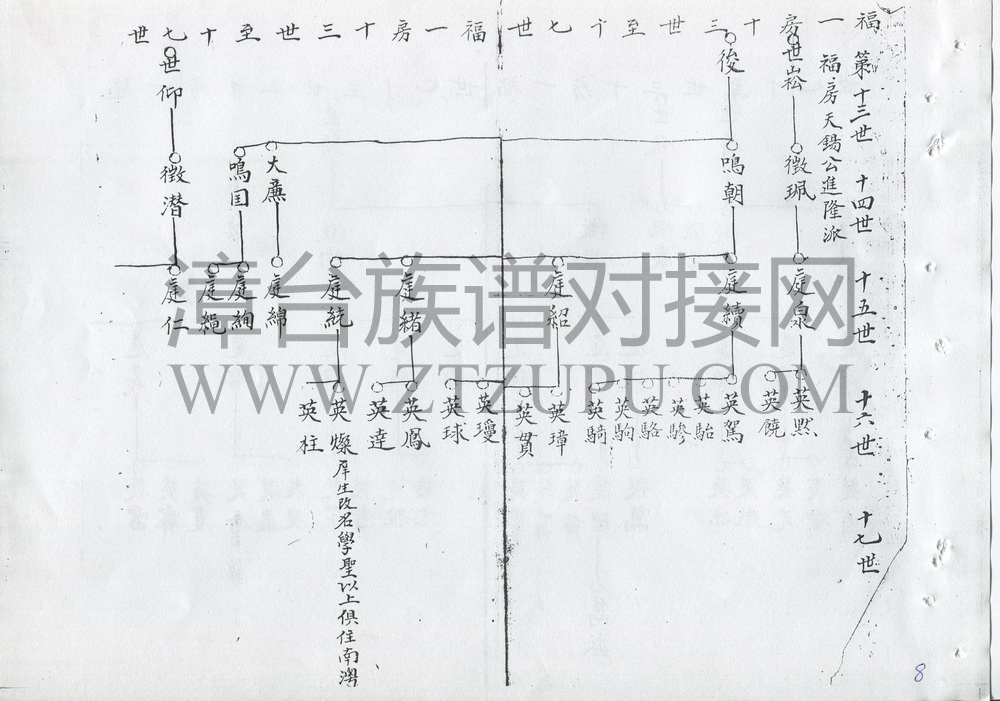 福一房十三世至十七世
福一房十三世至十七世
福第十三世
十四世
十五世
十六世
十七世
福房天錫公進隆派
世崧
徵珮
庭泉
英默
英饒
後
鳴朝
庭續
英駕
英駘
英驂
英駱
英駒
英騎
庭紹
英璋
英貫
英瓊
英球
庭緒
英鳳
英達
庭統
英燦
庠生改名學聖以上俱住南灣
英柱
大廉
庭綿
鳴国
庭絢
庭繩
世仰
徵潛
庭仁
漳台族谱对接网
WWW.ZTZUPU.COM
8